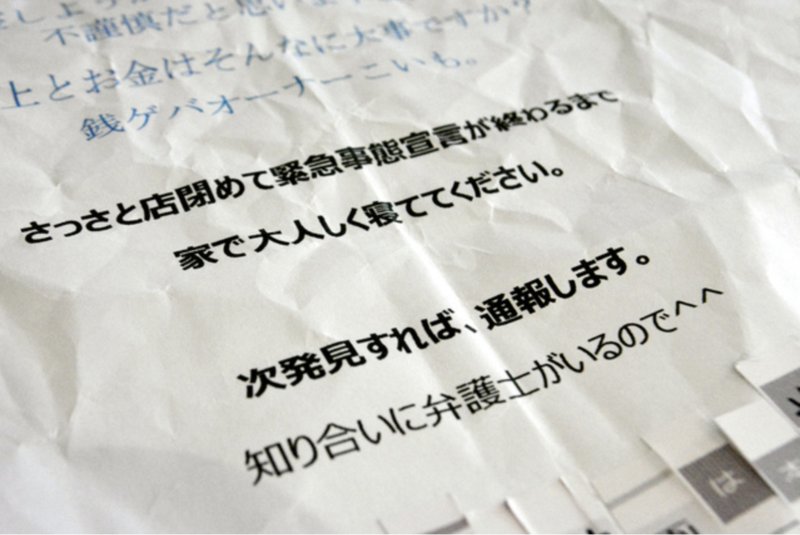 しょうが
不謹慎だと思いま
上とお金はそんなに大事ですか?
銭ゲバオーナーこいも。
さっさと店閉めて緊急事態宣言が終わるまで
家で大人しく寝ててください。
次発見すれば、通報します。
知り合いに弁護士がいるのでへへ
は